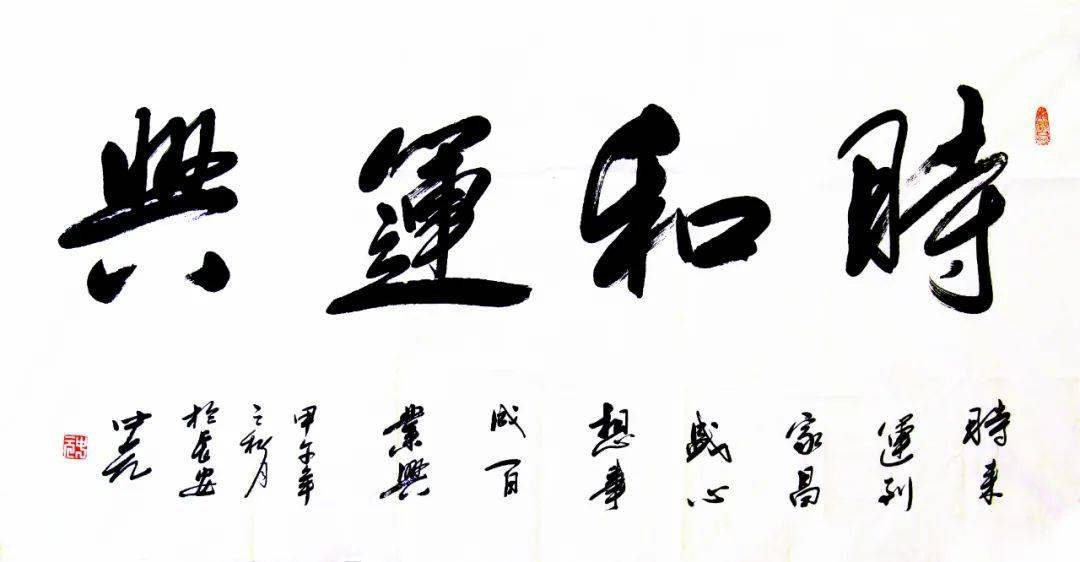 時和運興
時来
運到
家昌
盛心
想事
成百
業興
甲午年
之秋月
於長安